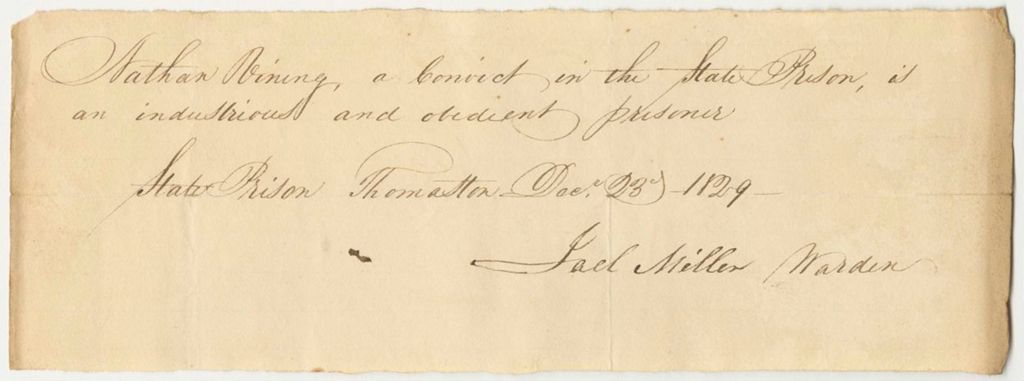 Nathan Vining, a Convict in the State Prison, is
an industrious and obedient prisoner
State Prison Thomaston Decr. 23d 1829
Joel Miller Warden